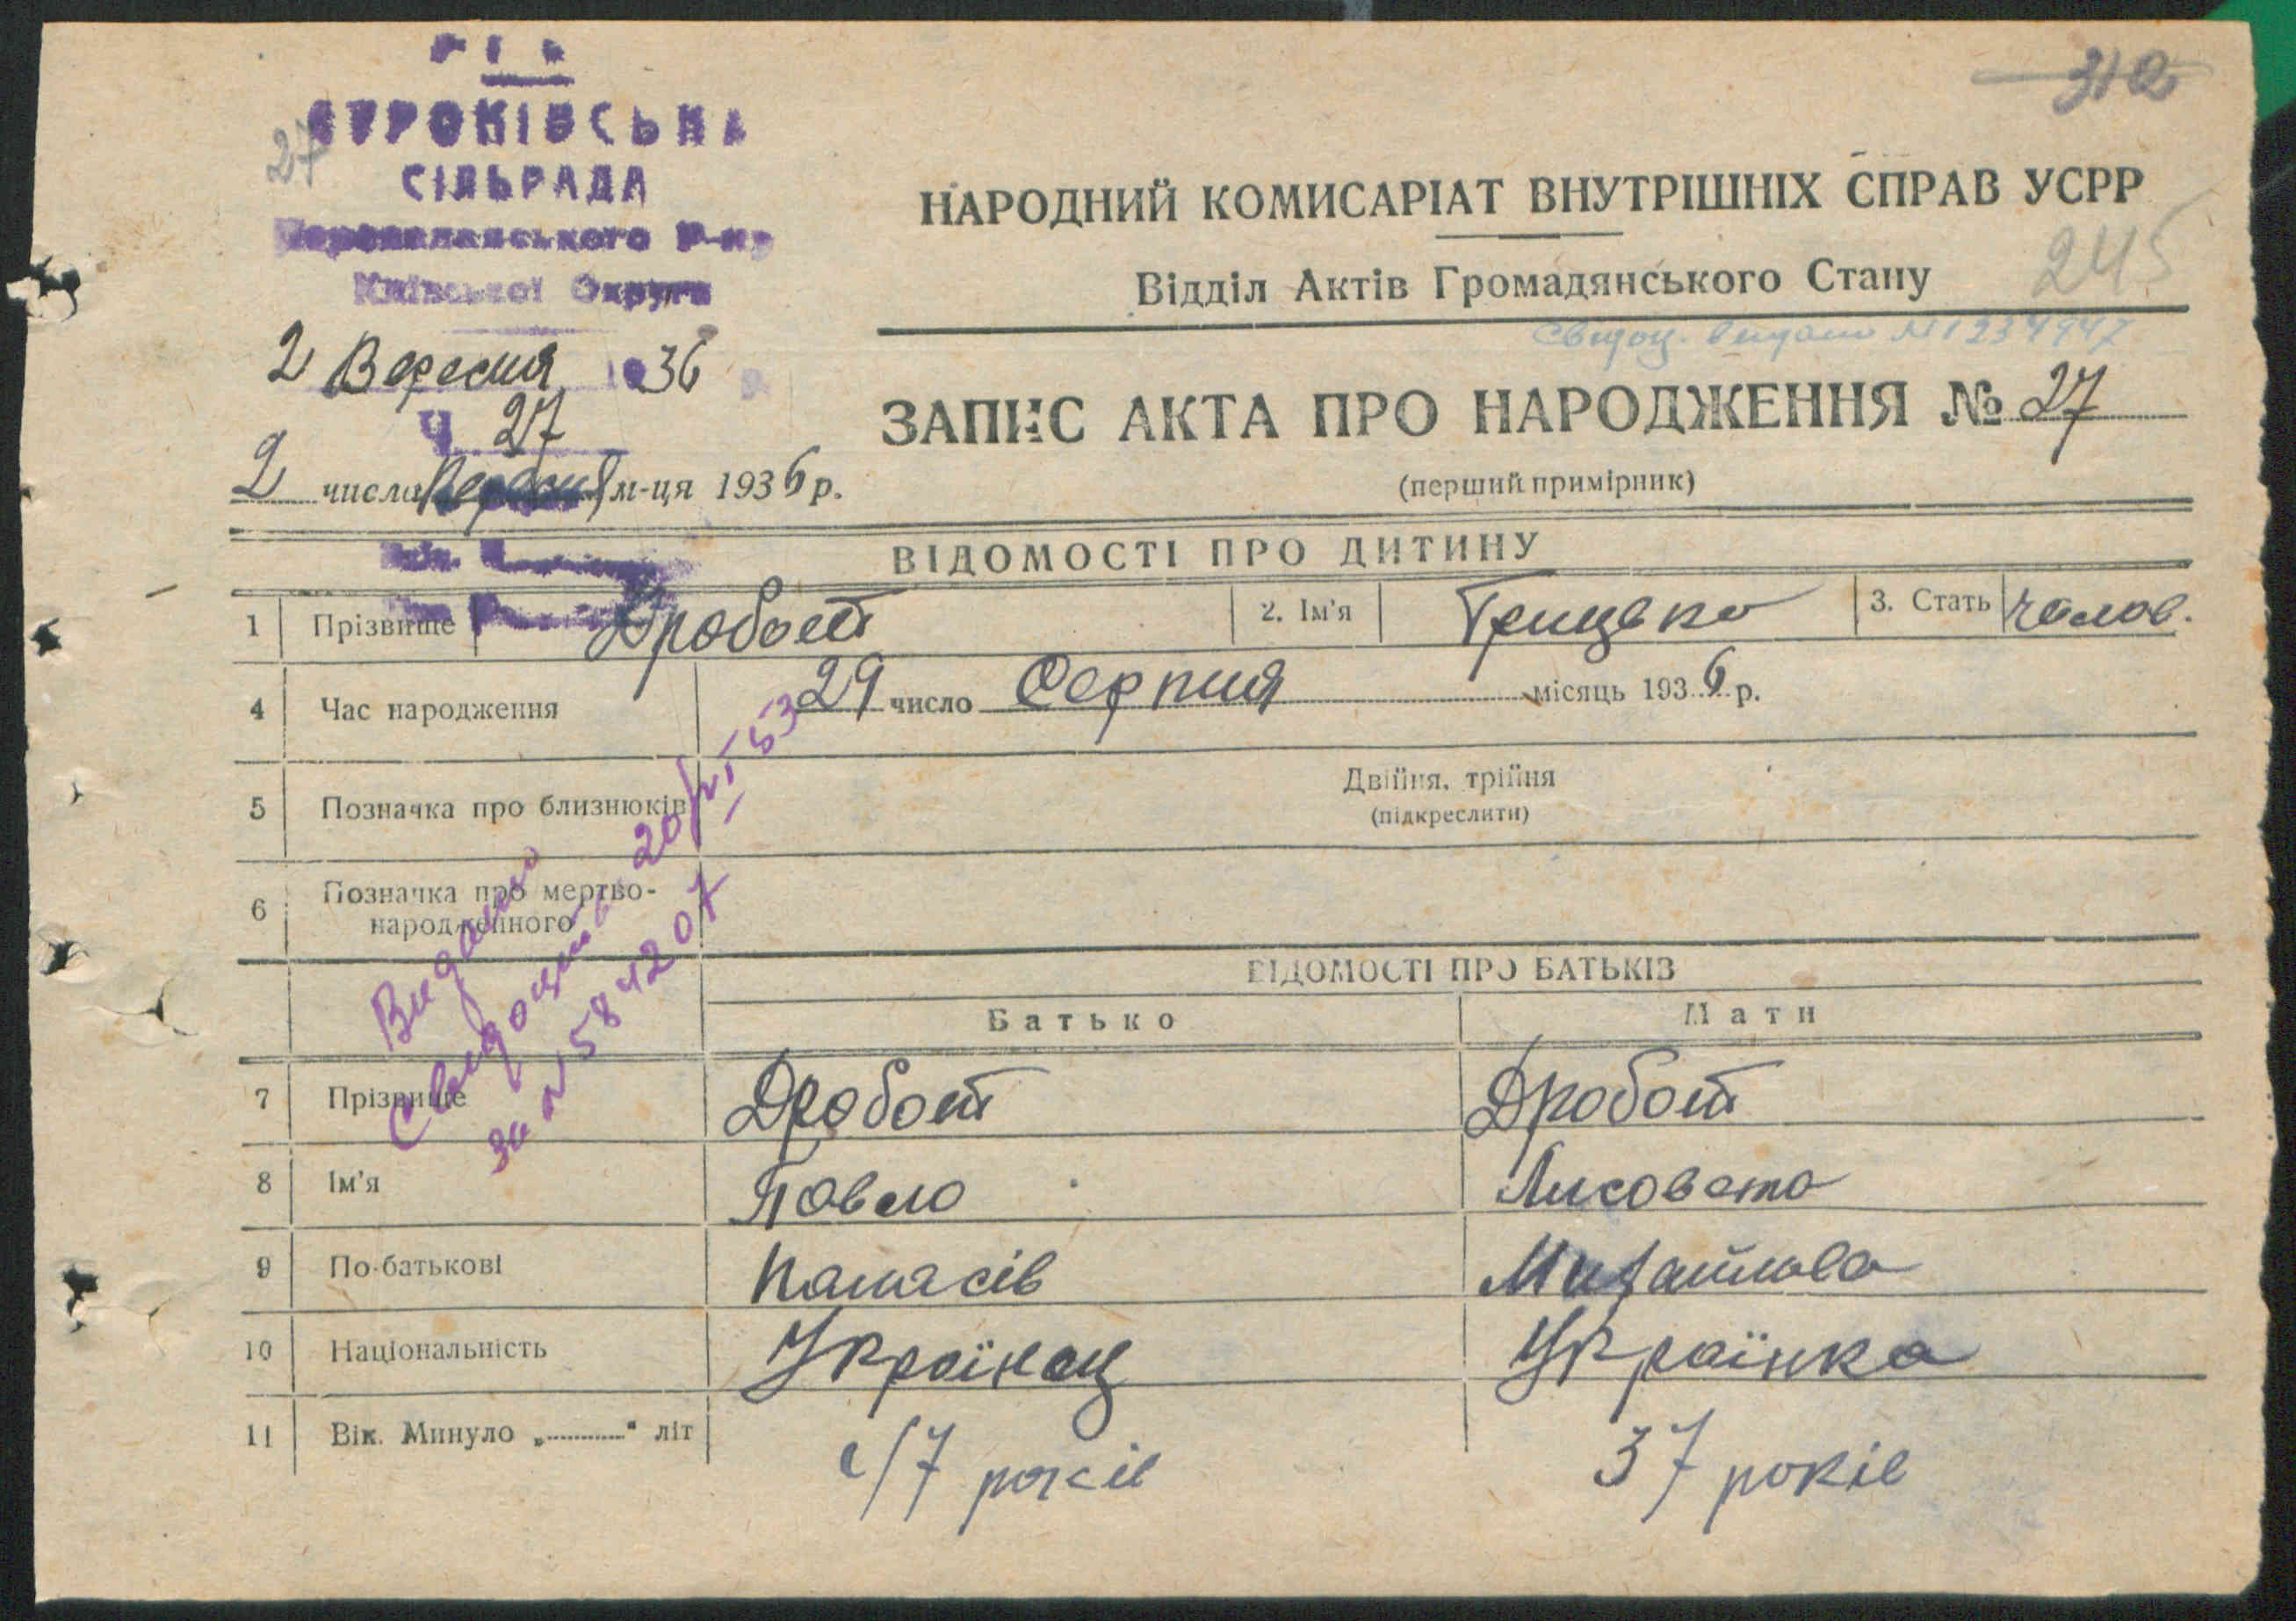 СТРОКІВСЬКА
СІЛЬРАДА
Київської Округи
2 Вересня 1936
Ч. 27
2 числа Вересня м-ця 1936 р.
27
312
НАРОДНИЙ КОМИСАРІАТ ВНУТРІШНІХ СПРАВ УСРР
245
Відділ Актів Громадянського Стану
Свидоц. видано № 1234947
ЗАПИС АКТА ПРО НАРОДЖЕННЯ № 27
(перший примірник)
ВІДОМОСТІ ПРО ДИТИНУ
1 Прізвище Дробот 2. Ім'я Грицько 3. Стать чолов.
4 Час народження 29 число Серпня місяць 1936 р.
5 Позначка про близнюків Двійня, трійня
(підкреслити)
6 Позначка про мертво-
народженного
Видано
свидоцтво 20/VI 53
за № 5842207
ВІДОМОСТІ ПРО БАТЬКІВ
Батько Мати
7 Прізвище Дробот Дробот
8 Ім'я Павло Лисовета
9 По-батькові Панасів Михайлова
10 Національність Українец Українка
11 Вік. Минуло „ “ літ 47 років 37 років